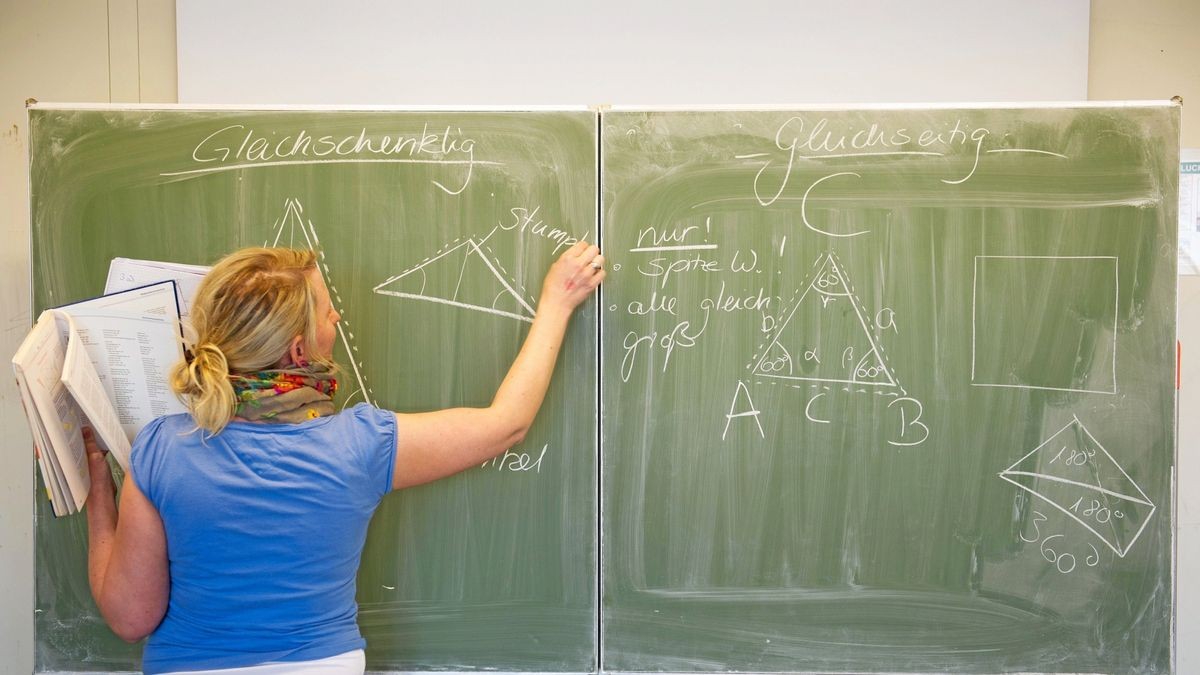 Gleichschenklig
Stumpf
Gleichseitig
nur!
Spitze W. !
alle gleich
groß
C
60°
γ
b
a
60°
α
β
60°
A
C
B
180°
180°
360°